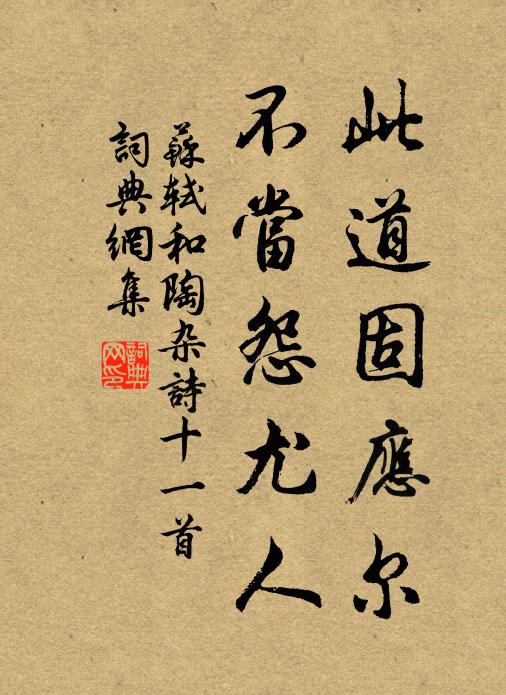 此道固應尔
不當怨尤人
蘇軾和陶杂詩十一首
詞典網集
詞典網印